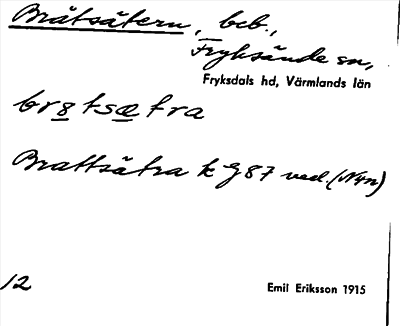 Bråtsätern, beb.,
Fryksände sn,
Fryksdals hd, Värmlands län
brɵtsætra
Brattsätra k G 87 ved. (N4n)
12
Emil Eriksson 1915